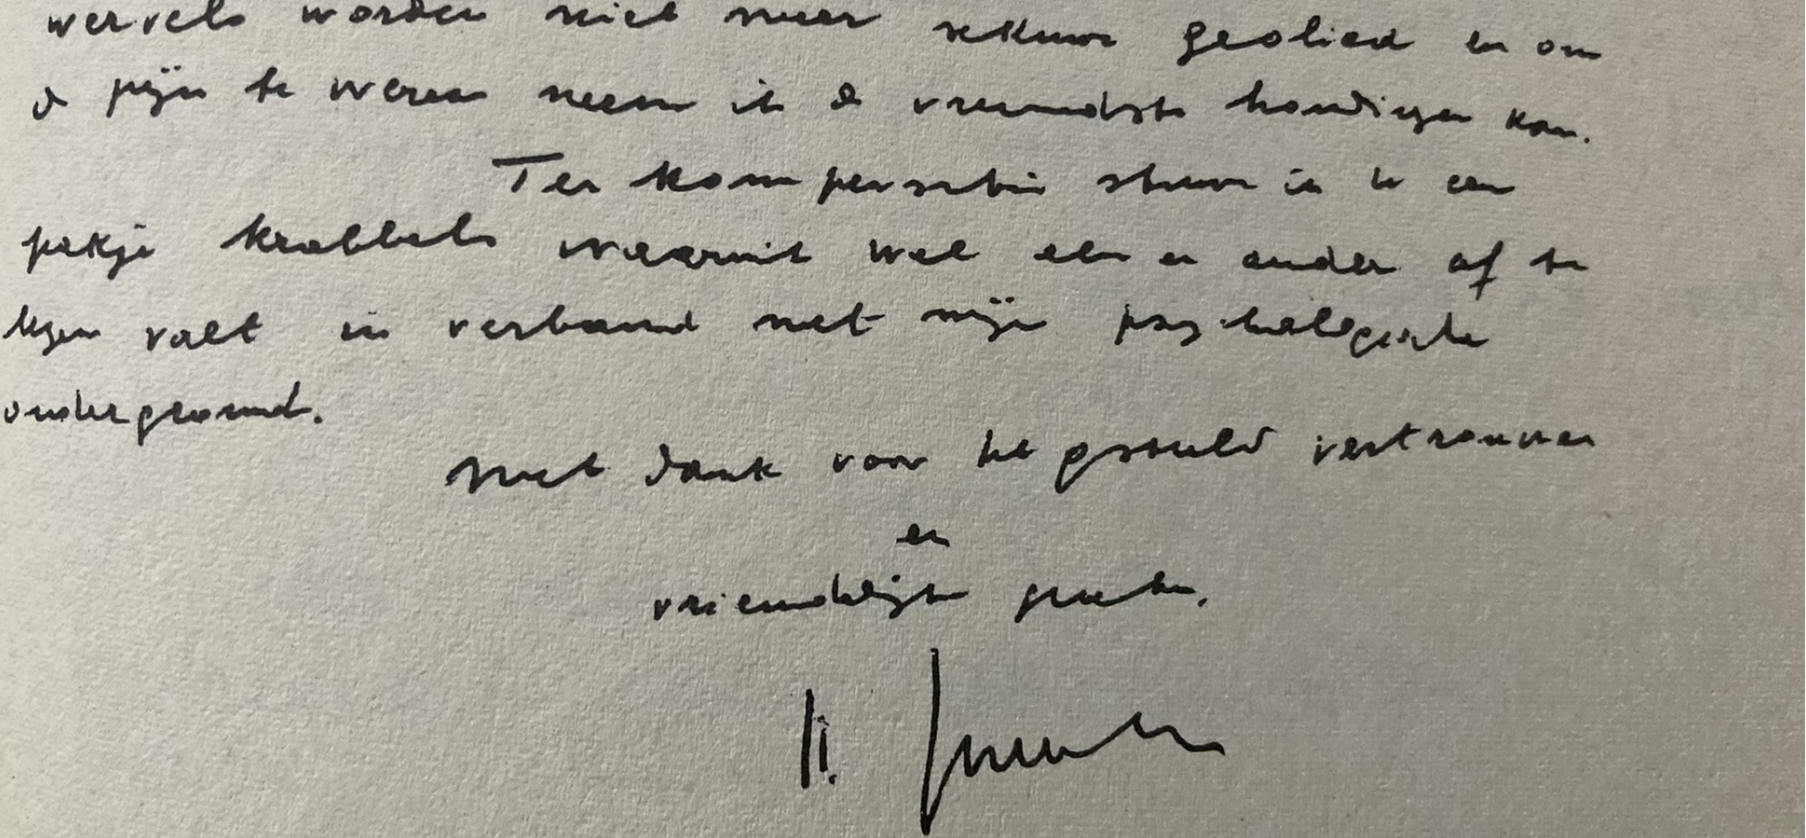 wervels worden niet meer sekuur geolied en om
de pijn te weren neem ik de vreemdste houdingen aan.
Ter kompensatie stuur ik u een
pakje krabbels waaruit wel een en ander af te
lezen valt in verband met mijn psychologische
ondergrond.
Met dank voor het gestelde vertrouwen
en
vriendelijke groeten,